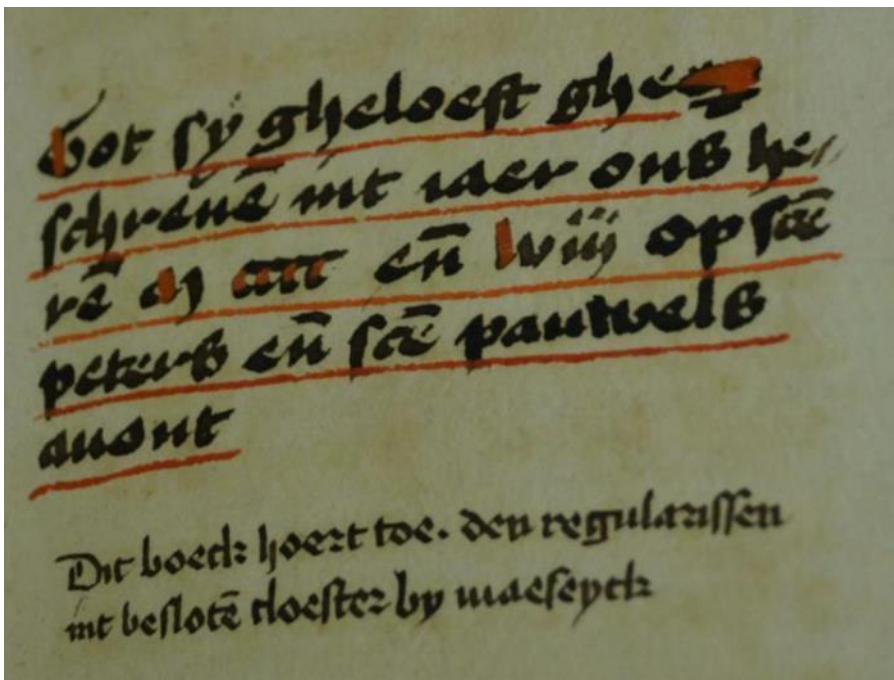 Got sy gheloeft ghe
schreuē int iaer ons he
rē M cccc eñ lviij op scē
peters eñ scē pauwels
auont
Dit boeck hoert toe. den regularissen
int beslotē cloester by maeseyck